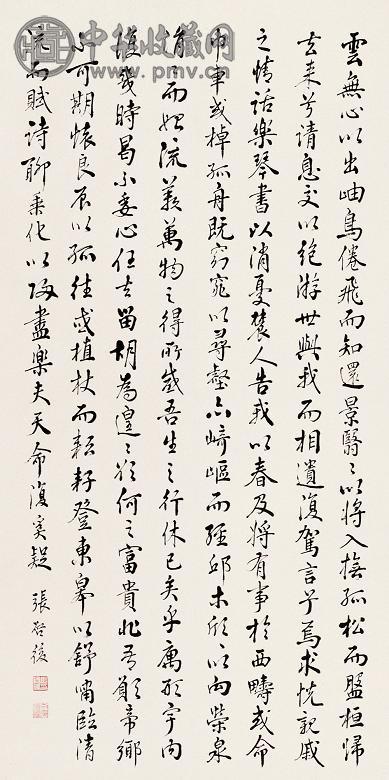 雲無心以出岫鳥倦飛而知還景翳〻以將入撫孤松而盤桓歸
去来兮請息交以絕游世與我而相遺復駕言兮焉求悅親戚
之情話樂琴書以消憂農人告我以春及將有事於西疇或命
巾車或棹孤舟既窈窕以尋壑亦崎嶇而經邱木欣〻以向榮泉
涓〻而始流羨萬物之得時感吾生之行休已矣乎寓形宇內
復幾時曷不委心任去留胡為遑〻欲何之富貴非吾願帝鄉
不可期懷良辰以孤往或植杖而耘耔登東皋以舒嘯臨清
流而賦詩聊乘化以歸盡樂夫天命復奚疑 張啓後